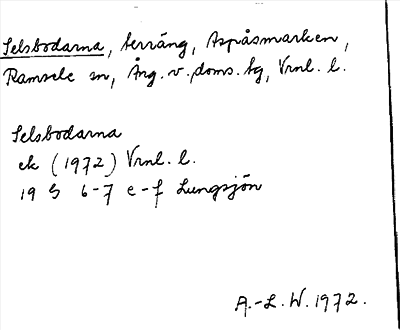 Selsbodarna, terräng, Aspåsmarken,
Ramsele sn, Ång. v. doms. tg, Vrnl. l.
Selsbodarna
ek (1972) Vrnl. l.
19 G 6-7 e-f Lungsjön
A.-L. W. 1972.